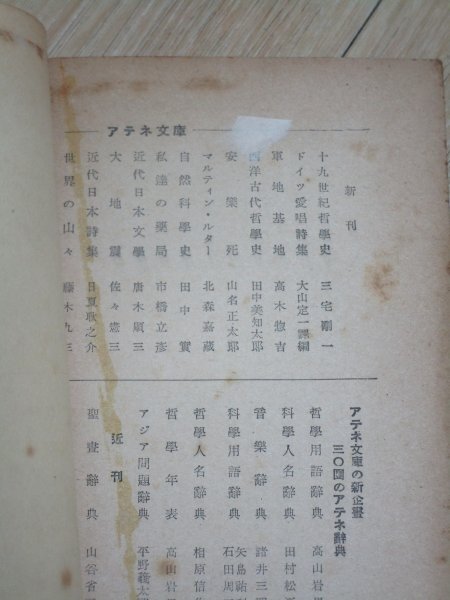 アテネ文庫
新刊
十九世紀哲學史 三宅剛一
ドイツ愛唱詩集 大山定一譯編
軍地基地 高木惣吉
西洋古代哲學史 田中美知太郎
安樂死 山名正太郎
マルティン・ルター 北森嘉蔵
自然科學史 田中實
私達の藥局 市橋立彦
近代日本文學 唐木順三
大地震 佐々憲三
近代日本詩集 日夏耿之介
世界の山々 藤木九三
アテネ文庫の新企畫
三〇圓のアテネ辞典
哲學用語辞典 高山岩
科學人名辞典 田村松
音樂辞典 諸井三
科學用語辞典 矢島祐 石田周
哲學人名辞典 相原信
哲學年表 高山岩
アジア問題辞典 平野義太
近刊
聖書辞典 山谷省